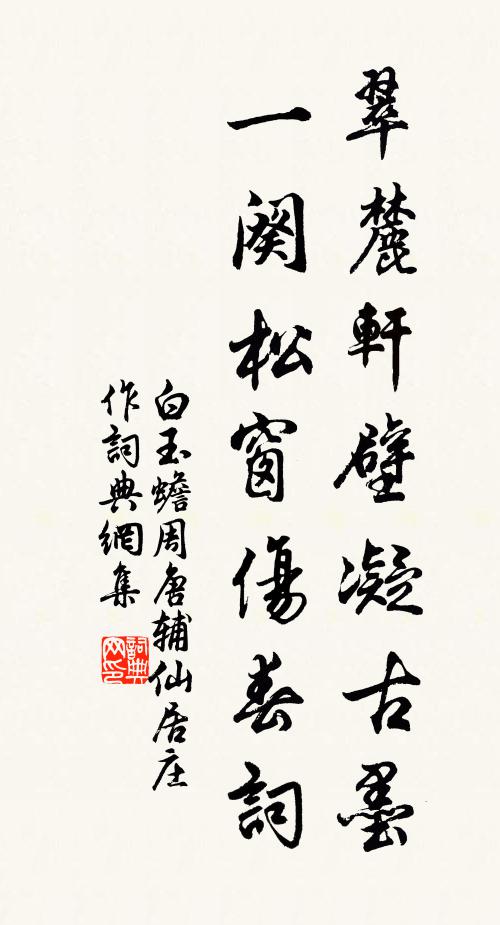 翠麓軒壁凝古墨
一闋松窗傷春詞
白玉蟾周唐輔仙居庄
作詞典網集
詞典網印